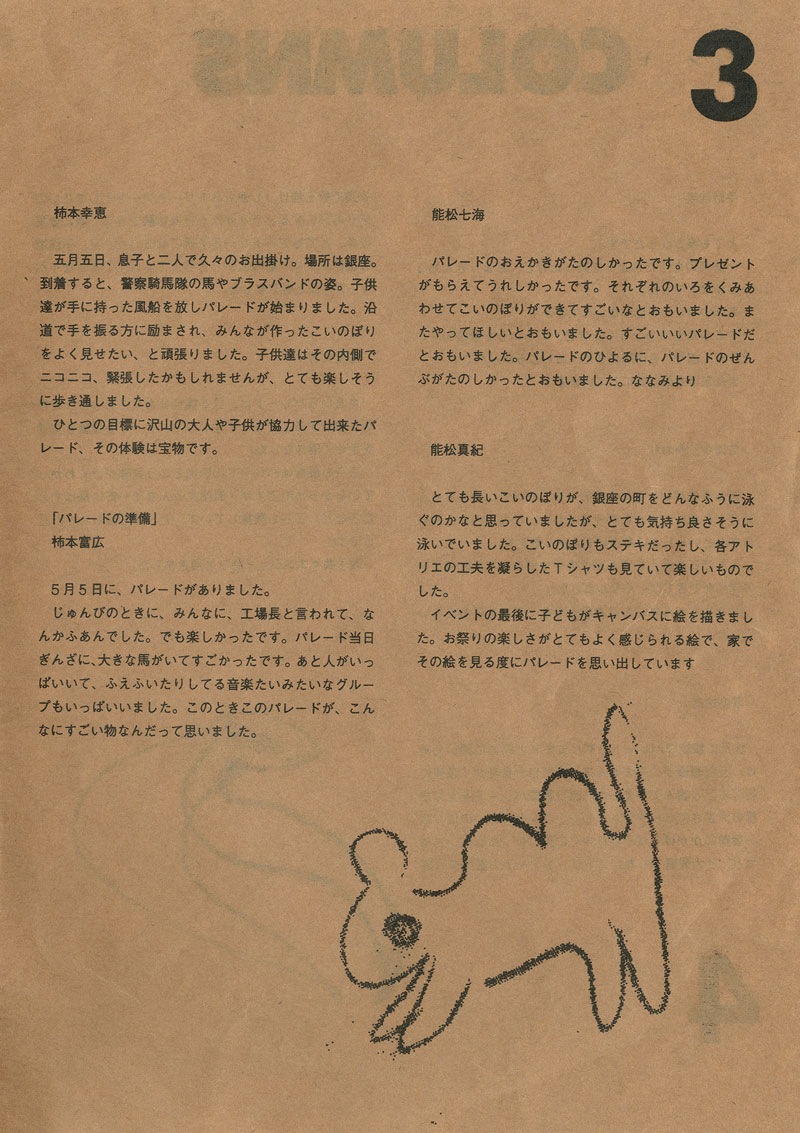 3
柿本幸恵
五月五日、息子と二人で久々のお出掛け。場所は銀座。
到着すると、警察騎馬隊の馬やブラスバンドの姿。子供
達が手に持った風船を放しパレードが始まりました。沿
道で手を振る方に励まされ、みんなが作ったこいのぼり
をよく見せたい、と頑張りました。子供達はその内側で
ニコニコ、緊張したかもしれませんが、とても楽しそう
に歩き通しました。
ひとつの目標に沢山の大人や子供が協力して出来たパ
レード、その体験は宝物です。
「パレードの準備」
柿本富広
５月５日に、パレードがありました。
じゅんびのときに、みんなに、工場長と言われて、な
んかふあんでした。でも楽しかったです。パレード当日
ぎんざに、大きな馬がいてすごかったです。あと人がいっ
ぱいいて、ふえふいたりしてる音楽たいみたいなグルー
プもいっぱいいました。このときこのパレードが、こん
なにすごい物なんだって思いました。
能松七海
パレードのおえかきがたのしかったです。プレゼント
がもらえてうれしかったです。それぞれのいろをくみあ
わせてこいのぼりができてすごいなとおもいました。ま
たやってほしいとおもいました。すごいいいパレードだ
とおもいました。パレードのひよるに、パレードのぜん
ぶがたのしかったとおもいました。ななみより
能松真紀
とても長いこいのぼりが、銀座の町をどんなふうに泳
ぐのかなと思っていましたが、とても気持ち良さそうに
泳いでいました。こいのぼりもステキだったし、各アト
リエの工夫を凝らしたＴシャツも見ていて楽しいもので
した。
イベントの最後に子どもがキャンバスに絵を描きまし
た。お祭りの楽しさがとてもよく感じられる絵で、家で
その絵を見る度にパレードを思い出しています
COLUMNS
4